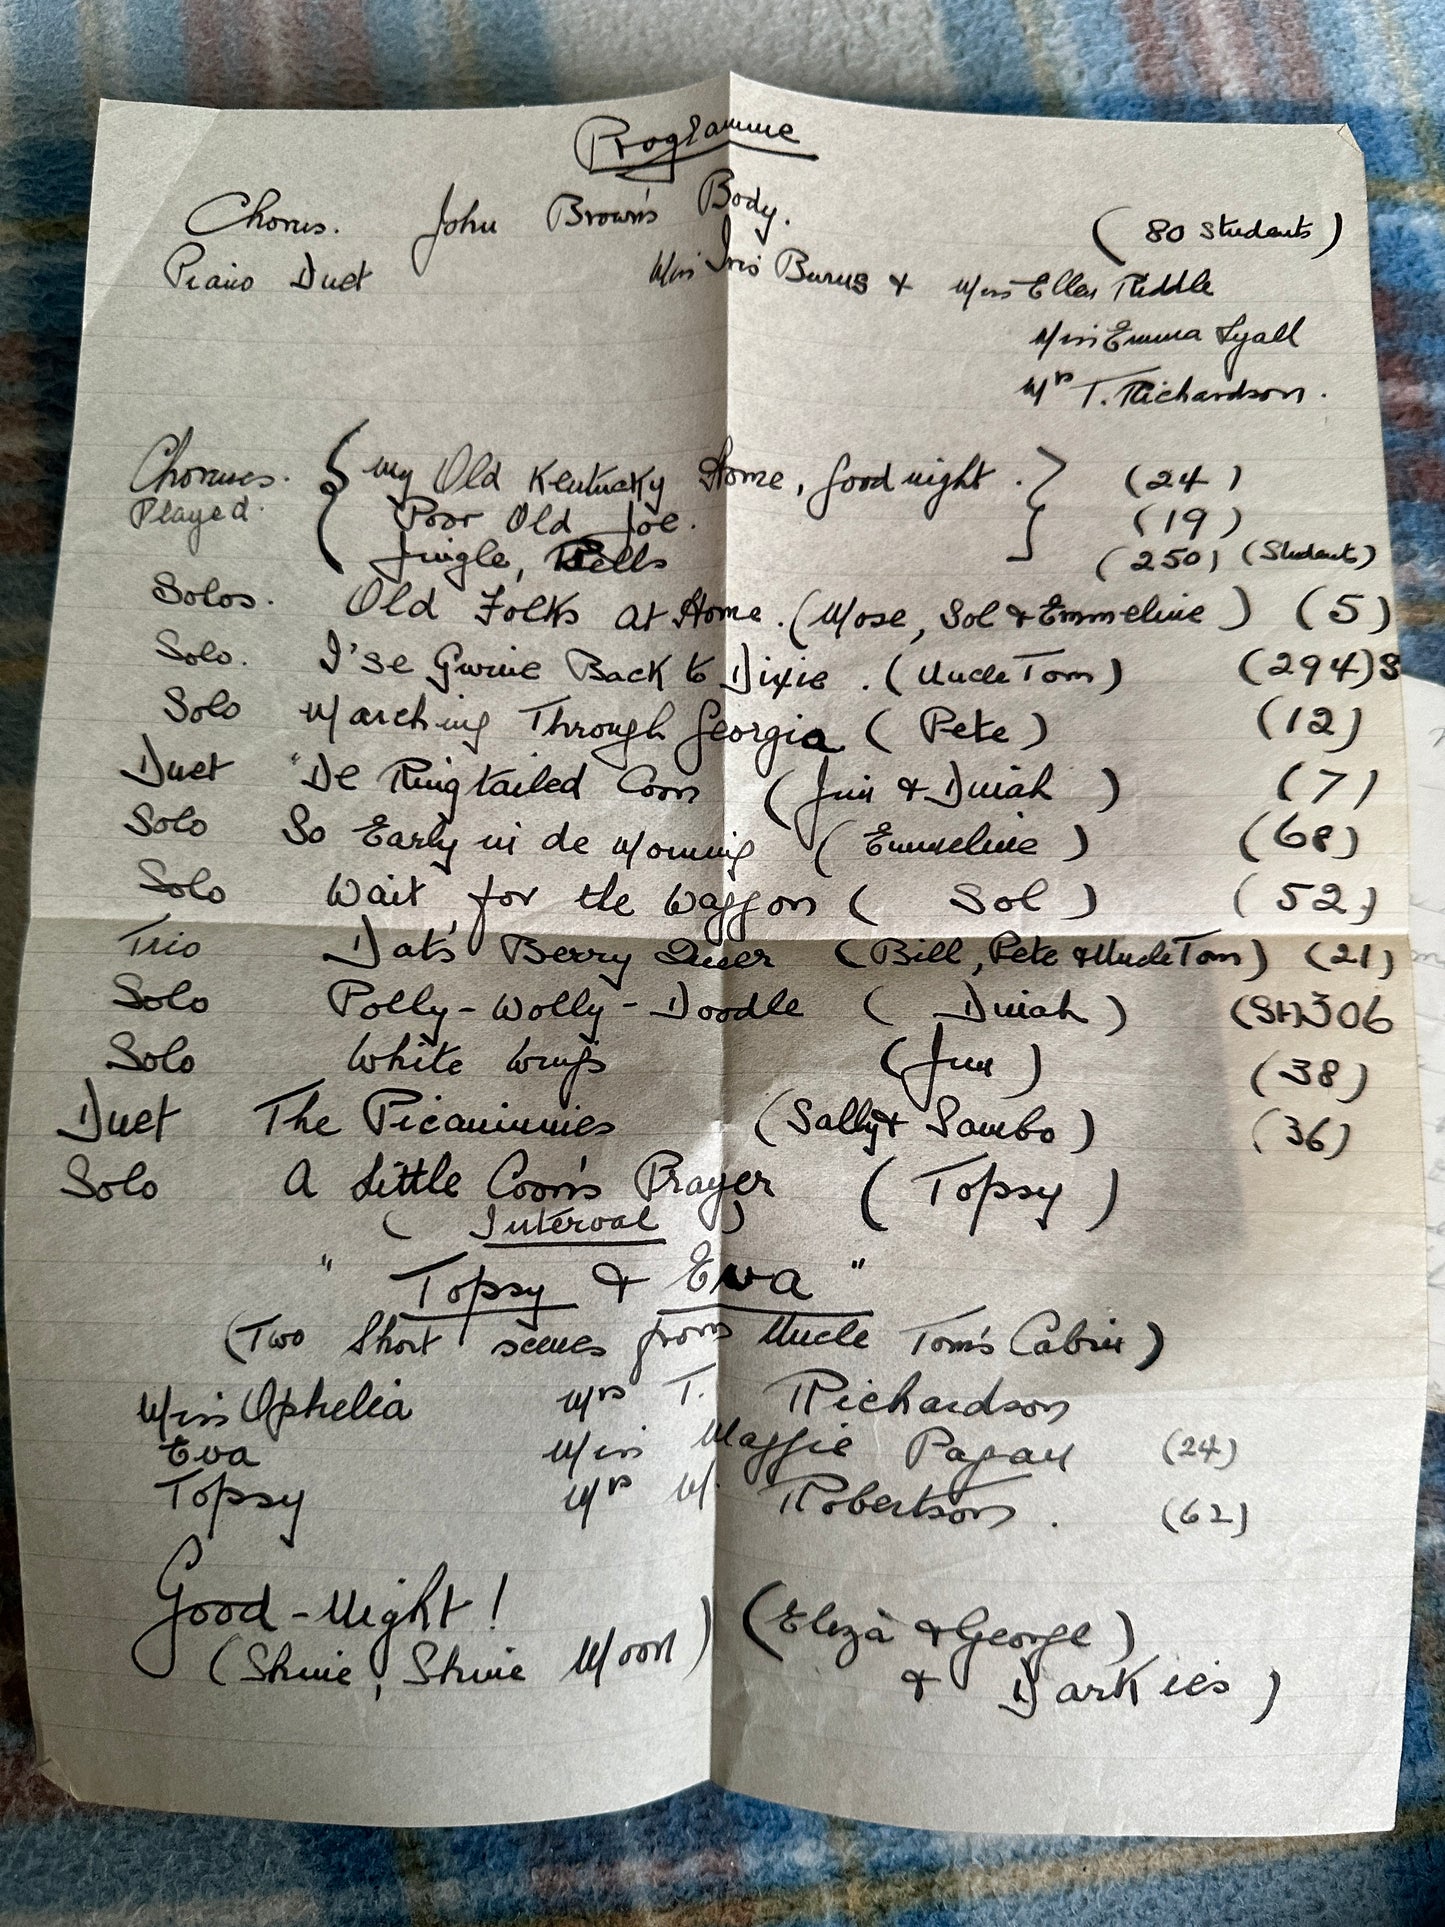 Programme
Chorus. John Brown's Body. (80 Students)
Piano Duet Miss Iris Burns & Miss Ellen Riddle
Miss Emma Lyall
Mrs T. Richardson.
Choruses. My Old Kentucky Home, Good night. (24)
Played. Poor Old Joe. (19)
Jingle, Bells (250) (Students)
Solos. Old Folks at Home. (Mose, Sol & Emmeline) (5)
Solo. I'se Gwine Back to Dixie. (Uncle Tom) (294)S
Solo Marching Through Georgia (Pete) (12)
Duet "De Ringtailed Coon (Jim & Dinah) (7)
Solo So Early in de Morning (Emmeline) (68)
Solo Wait for the Waggon (Sol) (52)
Trio Dat's Berry Queer (Bill, Pete & Uncle Tom) (21)
Solo Polly-Wolly-Doodle (Dinah) (St)306
Solo White Wings (Jim) (38)
Duet The Picaninnies (Sally & Sambo) (36)
Solo A Little Coon's Prayer (Topsy)
(Interval)
"Topsy & Eva"
(Two Short scenes from Uncle Tom's Cabin)
Miss Ophelia Mrs T. Richardson
Eva Miss Maggie Pagan (24)
Topsy Mrs M. Robertson. (62)
Good-Night! (Eliza & George)
(Shine, Shine Moon) & Darkies)